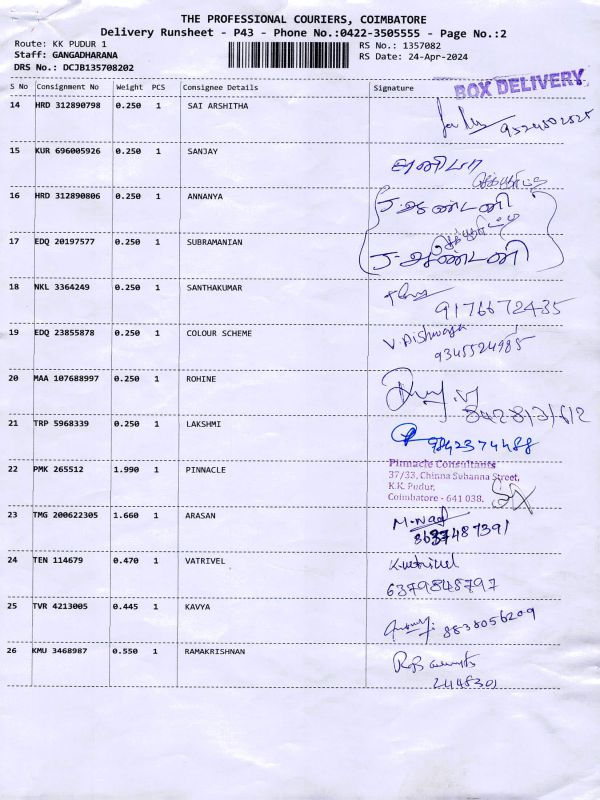 THE PROFESSIONAL COURIERS, COIMBATORE
Delivery Runsheet - P43 - Phone No.:0422-3505555 - Page No.:2
Route: KK PUDUR 1
RS No.: 1357082
Staff: GANGADHARANA
RS Date: 24-Apr-2024
DRS No.: DCJB135708202
BOX DELIVERY
S No Consignment No Weight PCS Consignee Details Signature
14 HRD 312890798 0.250 1 SAI ARSHITHA
15 KUR 696005926 0.250 1 SANJAY
16 HRD 312890806 0.250 1 ANNANYA
J-ஆண்டனி
17 EDQ 20197577 0.250 1 SUBRAMANIAN
J-ஆண்டனி
18 NKL 3364249 0.250 1 SANTHAKUMAR
9176672435
19 EDQ 23855878 0.250 1 COLOUR SCHEME
9345524985
20 MAA 107688997 0.250 1 ROHINE
21 TRP 5968339 0.250 1 LAKSHMI
9842374488
22 PMK 265512 1.990 1 PINNACLE
Pinnacle Consultants
37/33, Chinna Subanna Street,
K.K. Pudur,
Coimbatore - 641 038.
23 TMG 200622305 1.660 1 ARASAN
24 TEN 114679 0.470 1 VATRIVEL
K.vetrivel
6379848797
25 TVR 4213005 0.445 1 KAVYA
8838056209
26 KMU 3468987 0.550 1 RAMAKRISHNAN
2448301